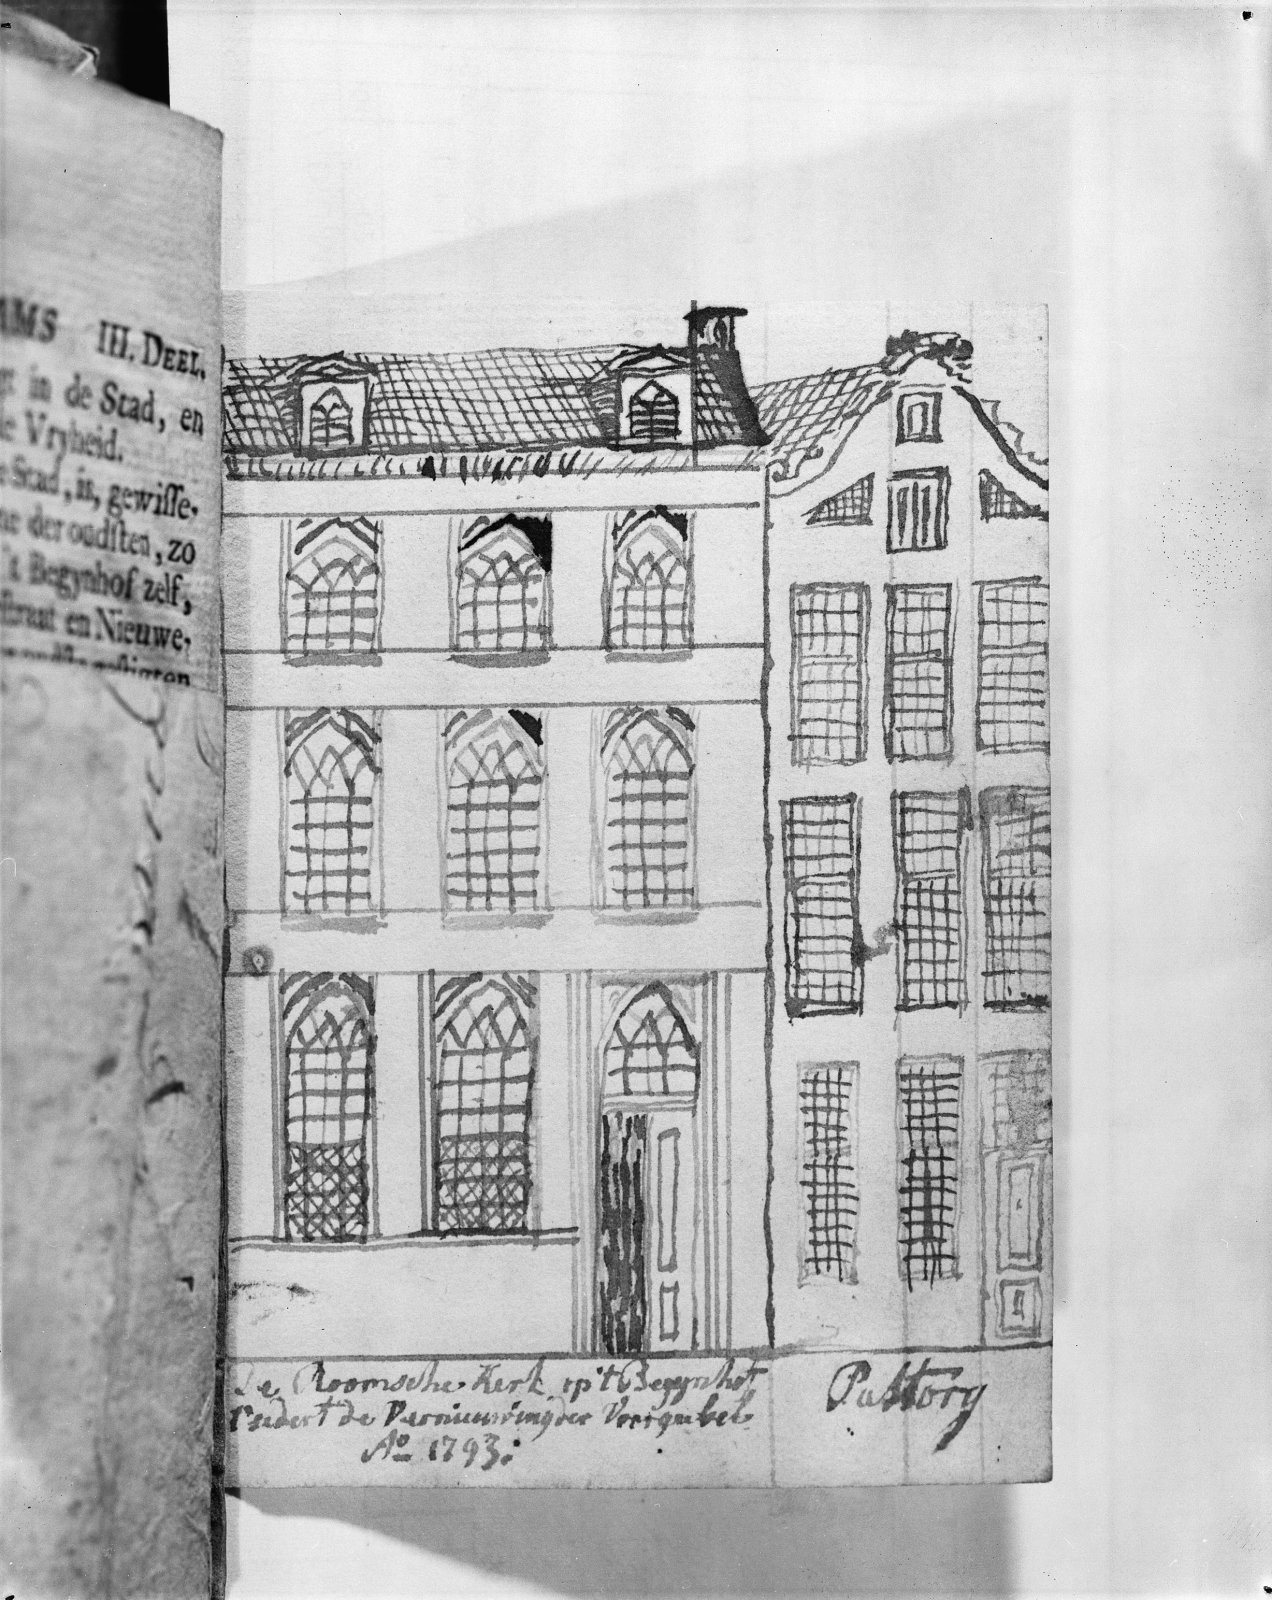 AMS III. DEEL.
in de Stad, en
de Vryheid.
Stad, is, gewiſſe-
der oudſten, zo
't Begynhof zelf,
ſtraat en Nieuwe-
De Roomsche Kerk op 't Begynhof
Sedert de Vernieuwing der Voorgevel
Aº 1793:
Pastory